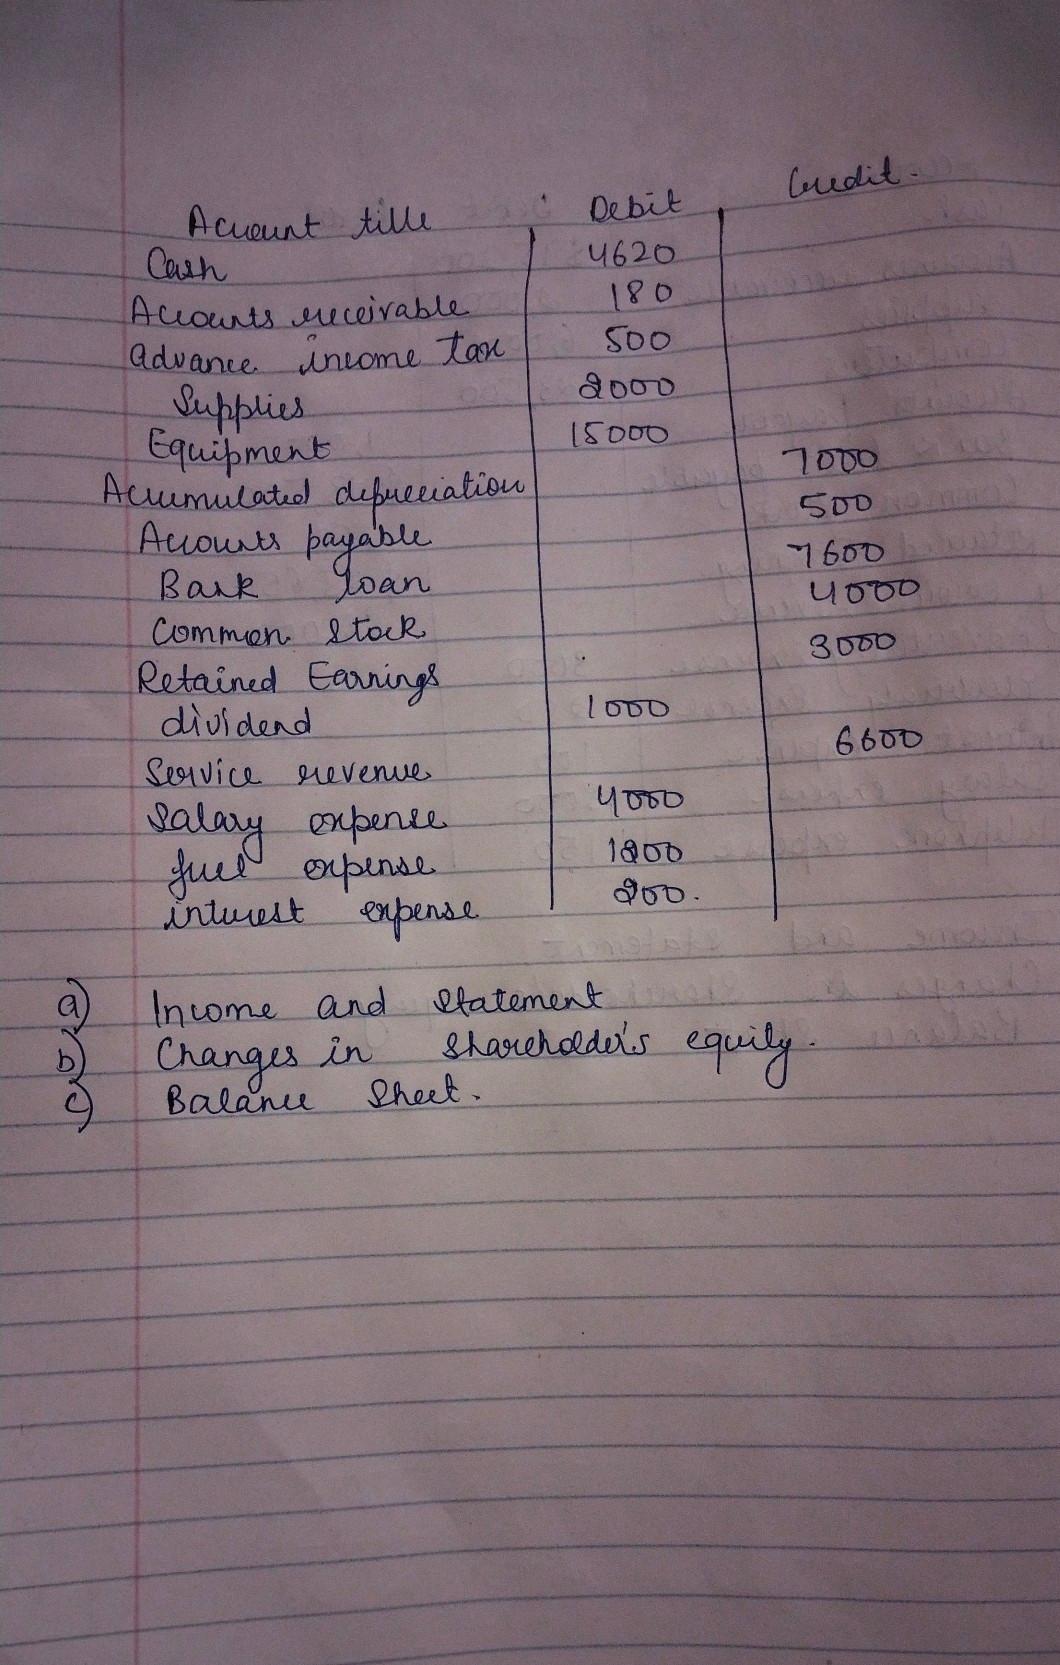 Account title Debit Credit.
Cash 4620
Accounts receivable 180
advance income tax 500
Supplies 2000
Equipment 15000
Accumulated depreciation 7000
Accounts payable 500
Bank loan 7600
Common Stock 4000
Retained Earnings 3000
dividend 1000
Service revenue 6600
Salary expense 4000
fuel expense 1200
interest expense 200.
a) Income and Statement
b) Changes in Shareholder's equity.
c) Balance Sheet.